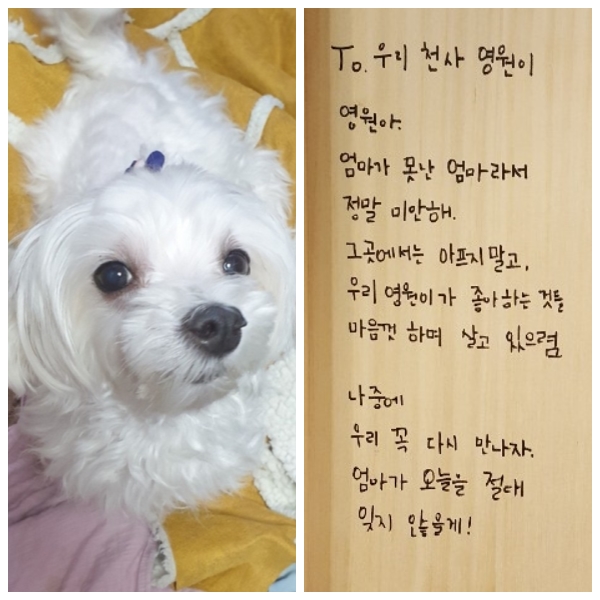 To. 우리 천사 영원이
영원아.
엄마가 못난 엄마라서
정말 미안해.
그곳에서는 아프지말고,
우리 영원이가 좋아하는 것들
마음껏 하며 살고 있으렴
나중에
우리 꼭 다시 만나자.
엄마가 오늘을 절대
잊지 않을게!